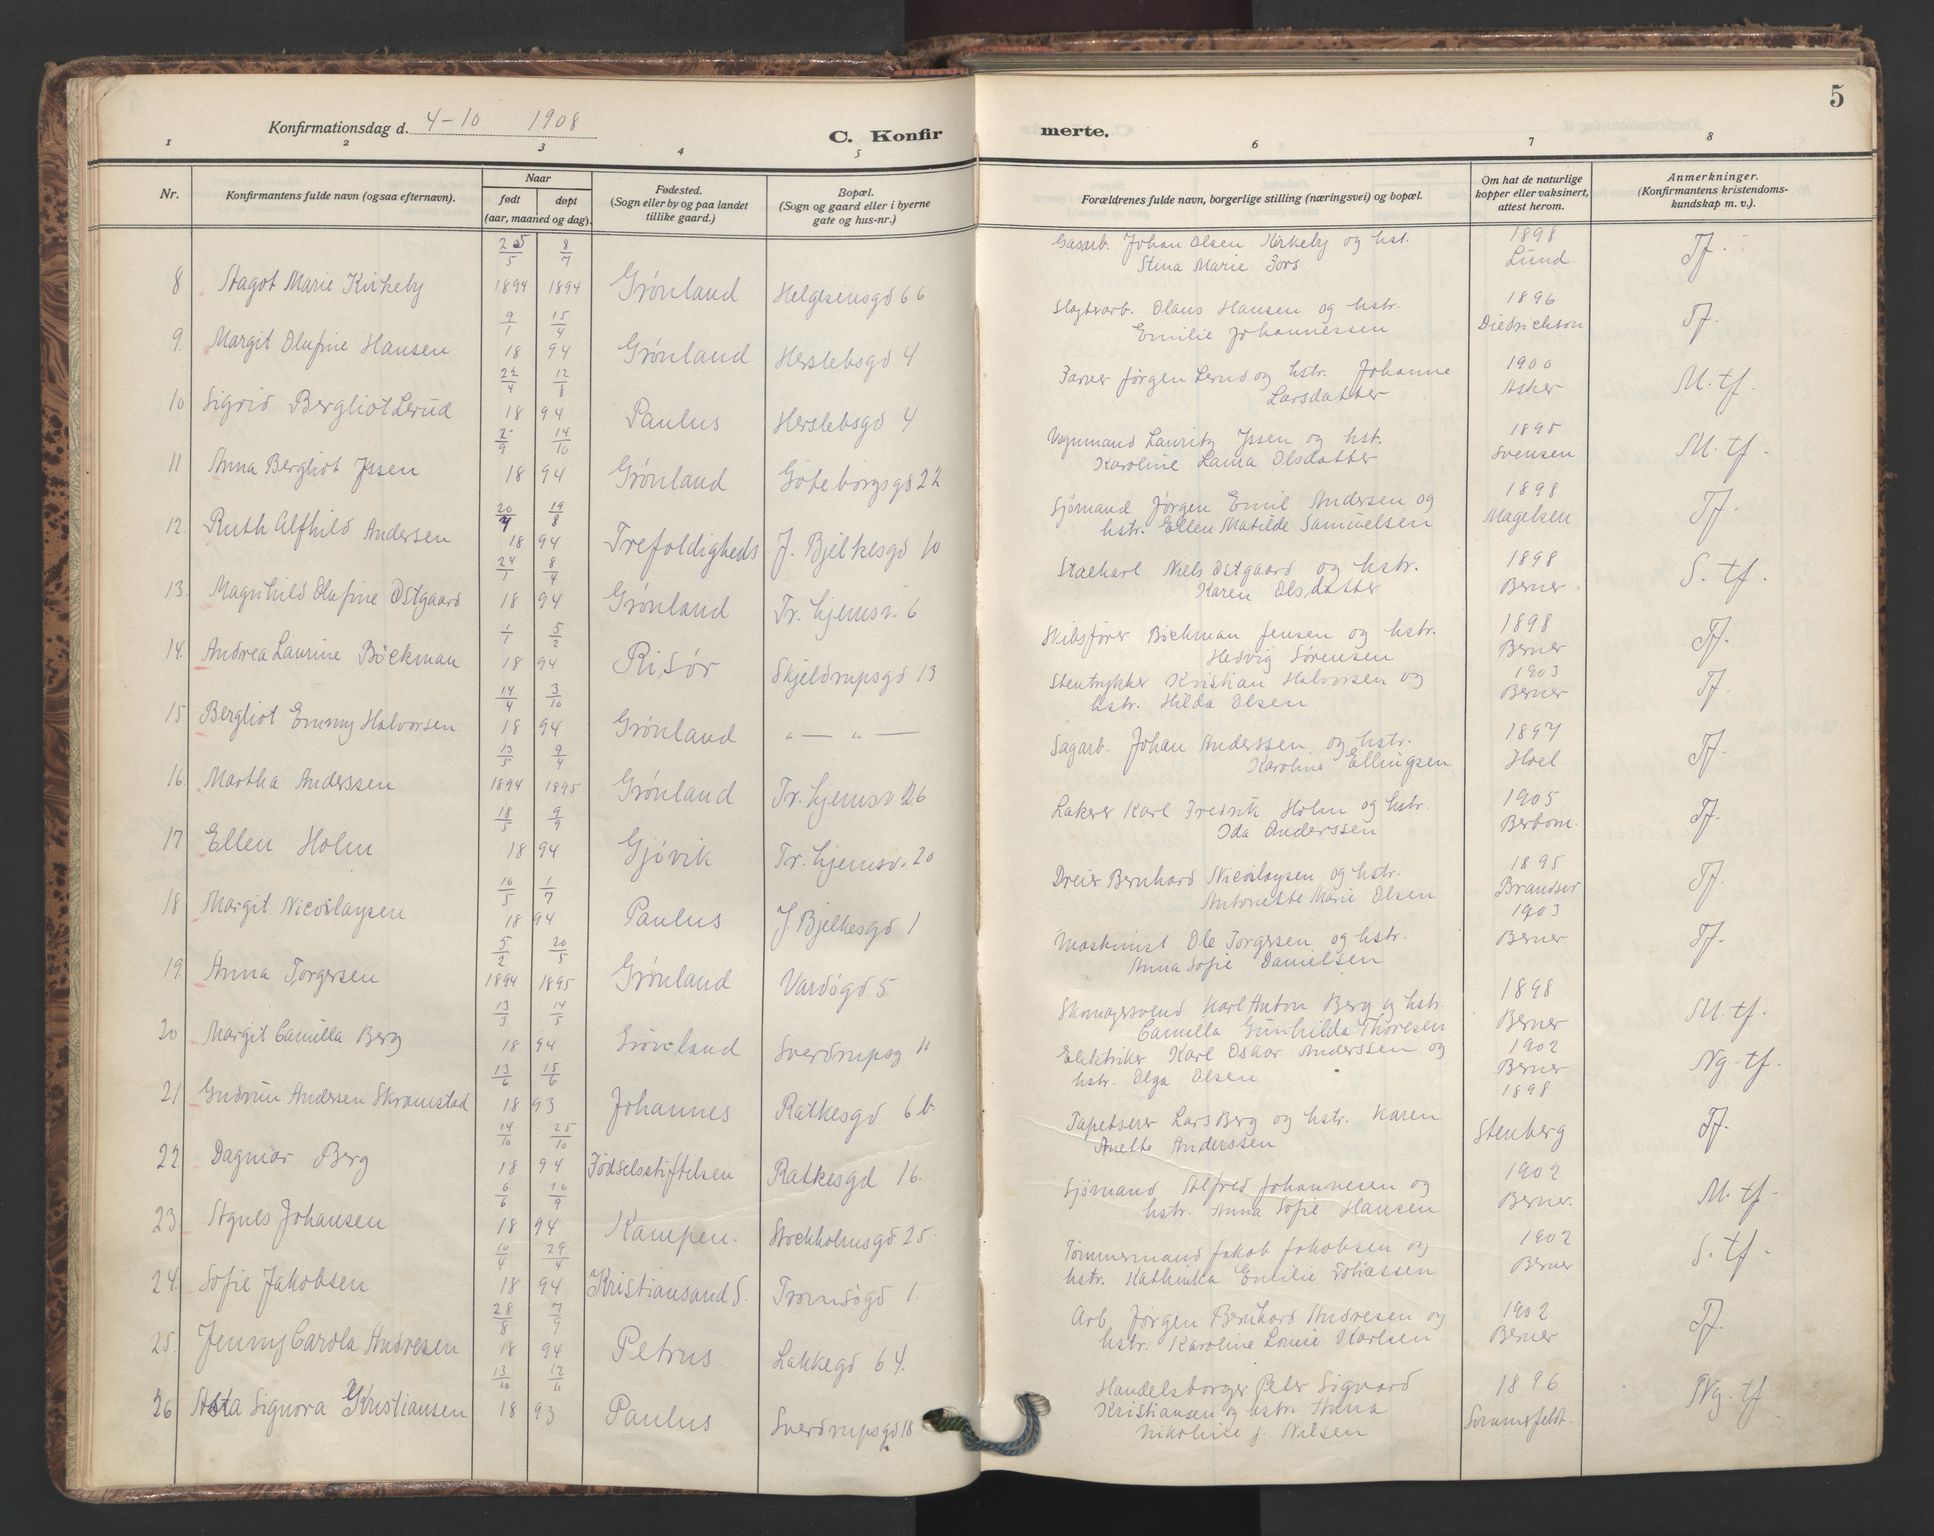 5
Konfirmationsdag d. 4-10 1908
C. Konfir
merte.
1 2 3 4 5 6 7 8
Nr.
Konfirmantens fulde navn (ogsaa efternavn).
Naar
født døpt
(aar, maaned og dag).
Fødested.
(Sogn eller by og paa landet
tillike gaard.)
Bopæl.
(Sogn og gaard eller i byerne
gate og hus-nr.)
Forældrenes fulde navn, borgerlige stilling (næringsvei) og bopæl.
Om hat de naturlige
kopper eller vaksinert,
attest herom.
Anmerkninger.
(Konfirmantens kristendoms-
kundskap m. v.).
25/5 8/7 Gasarb. Johan Olsen Kirkeby og hst. 1898 Tf.
8 Aagot Marie Kirkeby 1894 1894 Grønland Helgesensgd 66 Stina Marie Fors Lund
9/1 15/4 Slagterarb. Olaus Hansen og hstr. 1896 Tf.
9. Margit Olufine Hansen 18 94 Grønland Herslebsgd 4 Emilie Johannessen Diedrichson
22/4 12/8 Farver Jørgen Lerud og hstr. Johanne 1900 M. tf.
10 Sigrid Bergliot Lerud 18 94 Paulus Herslebsgd 4 Larsdatter Asker
2/9 14/10 Vognmand Lauritz Jssen og hst. 1895 M. tf.
11 Anna Bergliot Jssen 18 94 Grønland Göteborgsgd 22 Karoline Laura Olsdatter Svensen
20/7 19/8 Sjömand Jørgen Emil Andersen og 1898 Tf.
12. Ruth Alfhild Andersen 18 94 Trefoldigheds J. Bjelkesgd 10 hstr. Ellen Matilde Samuelsen Magelsen
24/1 8/4 Staelkarl Niels Østgaard og hstr. 1898 S. tf.
13. Magnhild Olufine Østgaard 18 94 Grønland Tr. hjemsv. 6 Karen Olsdatter Berner
1/1 5/2 Skibsfører Böckman Jensen og hstr. 1898 Tf.
14. Andrea Laurine Böckman 18 94 Risør Skjeldrupsgd 13 Hedvig Sørensen Berner
14/4 3/10 Stentrykker Kristian Halvorsen og 1903 Tf.
15 Bergliot Emmy Halvorsen 18 94 Grønland „ — „ — hstr. Hilda Olsen Berner
13/5 9/4 Sagarb. Johan Anderssen og hstr. 1897 Tf.
16. Martha Anderssen 1894 1895 Grønland Tr. hjemsv. 26 Karoline Ellingsen Hoel
18/5 9/9 Lakerer Karl Fredrik Holm og hstr. 1905 Tf.
17 Ellen Holm 18 94 Gjövik Tr. hjemsv. 20 Ida Anderssen Berbom.
16/5 1/7 Dreier Bernhard Nicolaysen og hstr. 1895 Tf.
18 Margit Nicolaysen 18 94 Paulus J. Bjelkesgd 1 Antonette Marie Olsen Brandser
5/2 20/5 Maskinist Ole Torgersen og hstr. 1903 Tf.
19. Anna Torgersen 1894 1895 Grønland Vardögd 5 Anna Sofie Danielsen Berner
13/3 14/5 Skomagersvend Karl Anton Berg og hstr. 1898 M. tf.
20 Margit Camilla Berg 18 94 Grönland Sverdrupsg 11 Camilla Gunhilda Thoresen Berner
13/6 15/6 Elektriker Karl Oskar Anderssen og 1902 Ng. tf.
21 Gudrun Andersen Skramstad 18 93 Johannes Ratkesgd 6 b. hstr. Olga Olsen Berner
14/10 25/10 Tapetserer Lars Berg og hstr. Karen 1898 Tf.
22. Dagmar Berg 18 94 Födselsstiftelsen Ratkesgd 16. Anette Anderssen Stenberg
6/6 16/9 Sjömand Alfred Johannesen og 1902 M. tf.
23. Agnes Johansen 18 94 Kampen. Stockholmsgd 25. hstr. Anna Sofie Hansen Berner.
10/4 29/4 Tømmermand Jakob Jakobsen og 1902 S. tf.
24. Sofie Jakobsen 18 94 Kristiansand S. Tromsögd 1. hstr. Kathinka Emilie Tobiassen Berner
28/8 7/9 Arb. Jørgen Bernhard Andresen og 1902 Tf.
25. Jenny Carola Andresen 18 94 Petrus Lakkegd 64. hstr. Karoline Louise Karlsen Berner
13/10 12/11 Handelsborger Peter Sigvard 1896 Ng. tf.
26 Asta Signora Kristiansen 18 93 Paulus Sverdrupsgd 18 Kristiansen og hstr. Anna Sommerfeldt.
Nikoline f. Nilsen